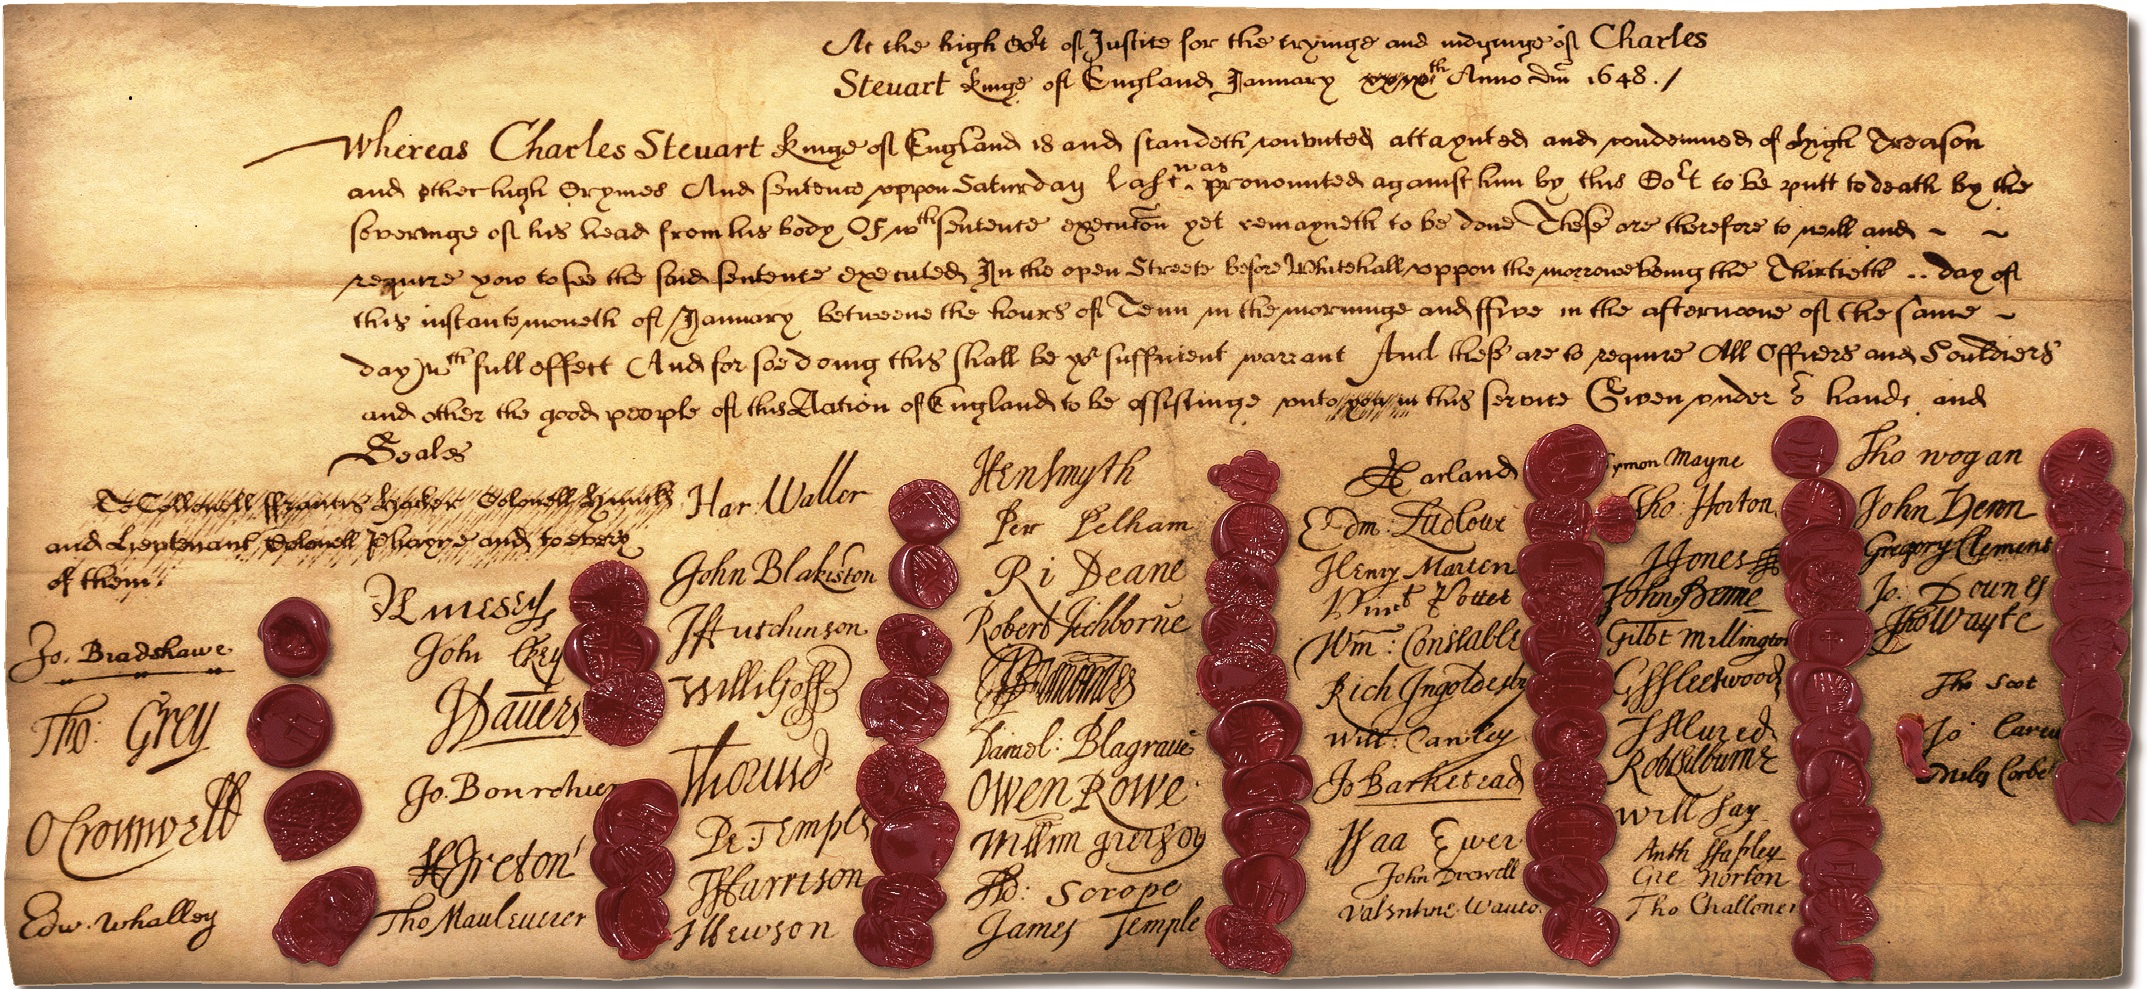 At the high Cot of Justice for the tryinge and iudginge of Charles
Steuart Kinge of England January xxixth Anno Dm 1648./
Whereas Charles Steuart Kinge of England is and standeth convicted attaynted and condemned of High Treason
and other high Crymes And sentence uppon Saturday last was pronounced against him by this Cort to be putt to death by the
severinge of his head from his body Of wch sentence execucon yet remayneth to be done These are therefore to will and
require you to see the said sentence executed In the open Streete before Whitehall uppon the morrowe being the Thirtieth day of
this instante moneth of January betweene the houres of Tenn in the morninge and ffive in the afternoone of the same
day wth full effect And for soe doing this shall be yor sufficient warrant And these are to require All Officers and Souldiers
and other the good people of this Nation of England to be assistinge unto you in this service Given under or hands and
Seales
To Collonell ffrancis Hacker Colonell Huncks
and Lieutenant Colonell Phayre and to every
of them
Jo. Bradshawe
Tho: Grey
O Cromwell
Edw. Whalley
M Livesey
John Okey
J Dauers
Jo. Bourchier
H Ireton
Tho Mauleverer
Har Waller
John Blakiston
J Hutchinson
Willi Goff
Tho Pride
Pe Temple
T Harrison
J Hewson
Hen Smyth
Per Pelham
Ri Deane
Robert Tichborne
H Edwardes
Daniel: Blagraue
Owen Rowe
Willm Purefoy
Ad: Scrope
James Temple
A Garland
Edm: Ludlowe
Henry Marten
Vinct Potter
Wm: Constable
Rich Ingoldesby
Will: Cawley
Jo Barkstead
Isaa Ewer
John Dixwell
Valentine Wauton
Symon Mayne
Tho Horton
J Jones
John Penne
Gilbt Millington
G ffleetwood
J Alured
Robt Lilburne
Will Say
Anth Stapley
Gre Norton
Tho Challoner
Tho Wogan
John Venn
Gregory Clement
Jo: Downes
Tho Wayte
Tho Scot
Jo Carew
Miles Corbet